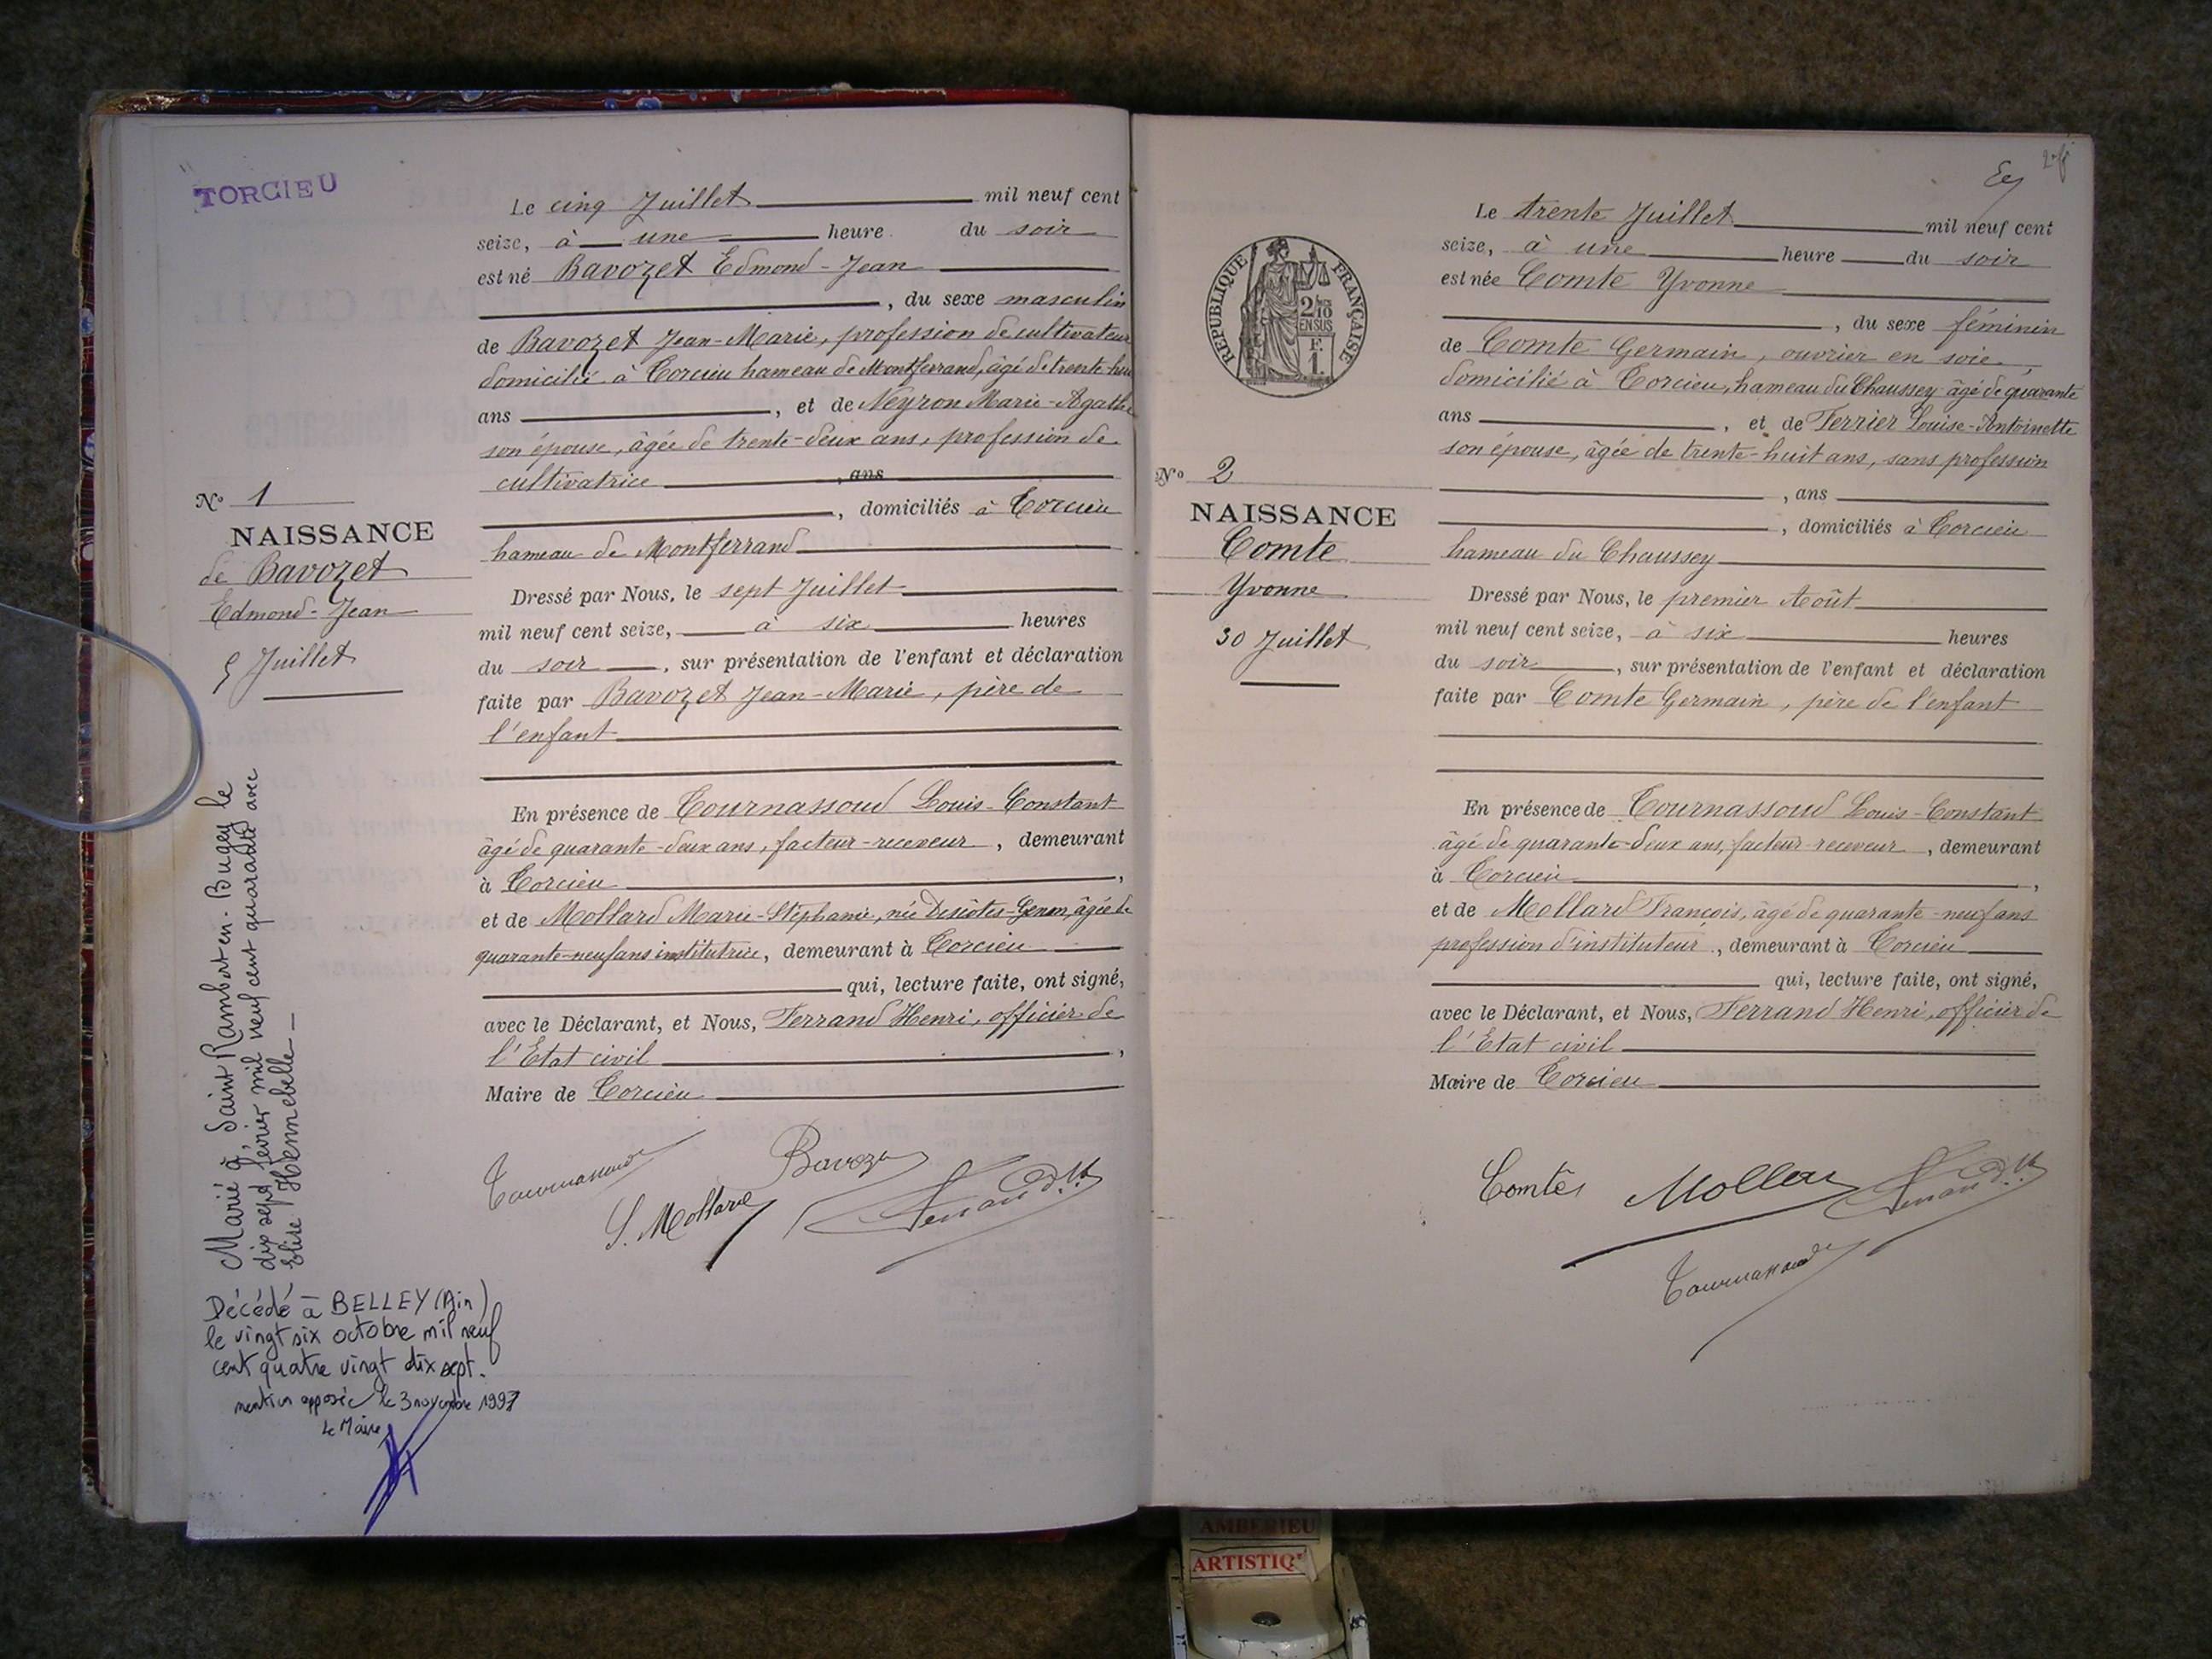 TORCIEU
Le cinq Juillet mil neuf cent
seize, à une heure du soir
est né Bavozet Edmond-Jean
, du sexe masculin
de Bavozet Jean-Marie, profession de cultivateur
domicilié à Torcieu hameau de Montferrand, âgé de trente-huit
ans , et de Neyron Marie-Agathe
son épouse, âgée de trente-deux ans, profession de
cultivatrice , ans
, domiciliés à Torcieu
hameau de Montferrand
Dressé par Nous, le sept Juillet
mil neuf cent seize, à six heures
du soir , sur présentation de l'enfant et déclaration
faite par Bavozet Jean-Marie, père de
l'enfant
En présence de Tournassoud Louis-Constant
âgé de quarante-deux ans, facteur-receveur , demeurant
à Torcieu ,
et de Mollard Marie-Stéphanie, née âgée de
quarante-neuf ans institutrice, demeurant à Torcieu
qui, lecture faite, ont signé,
avec le Déclarant, et Nous, Ferrand Henri, officier de
l'Etat civil ,
Maire de Torcieu
Tournassoud
Bavozet
S. Mollard
Ferrand H.
No 1
NAISSANCE
de Bavozet
Edmond-Jean
5 Juillet
Marié à Saint Rambert-en-Bugey le
dix sept février mil neuf cent quarante avec
Elise Hennebelle
Décédé à BELLEY (Ain)
le vingt six octobre mil neuf
cent quatre vingt dix sept.
mention apposée le 3 novembre 1997
Le Maire
REPUBLIQUE FRANÇAISE
2/10
EN SUS
F.
1.
No 2
NAISSANCE
Comte
Yvonne
30 Juillet
Le trente Juillet mil neuf cent
seize, à une heure du soir
est née Comte Yvonne
, du sexe féminin
de Comte Germain, ouvrier en soie
domicilié à Torcieu, hameau du Chaussey âgé de quarante
ans , et de Ferrier Louise-Antoinette
son épouse, âgée de trente-huit ans, sans profession
, ans
, domiciliés à Torcieu
hameau du Chaussey
Dressé par Nous, le premier Août
mil neuf cent seize, à six heures
du soir , sur présentation de l'enfant et déclaration
faite par Comte Germain, père de l'enfant
En présence de Tournassoud Louis-Constant
âgé de quarante-deux ans, facteur-receveur , demeurant
à Torcieu ,
et de Mollard François, âgé de quarante-neuf ans
profession d'instituteur , demeurant à Torcieu
qui, lecture faite, ont signé,
avec le Déclarant, et Nous, Ferrand Henri, officier de
l'Etat civil
Maire de Torcieu
Comte
Mollard
Ferrand H.
Tournassoud
AMBERIEU
ARTISTIQ